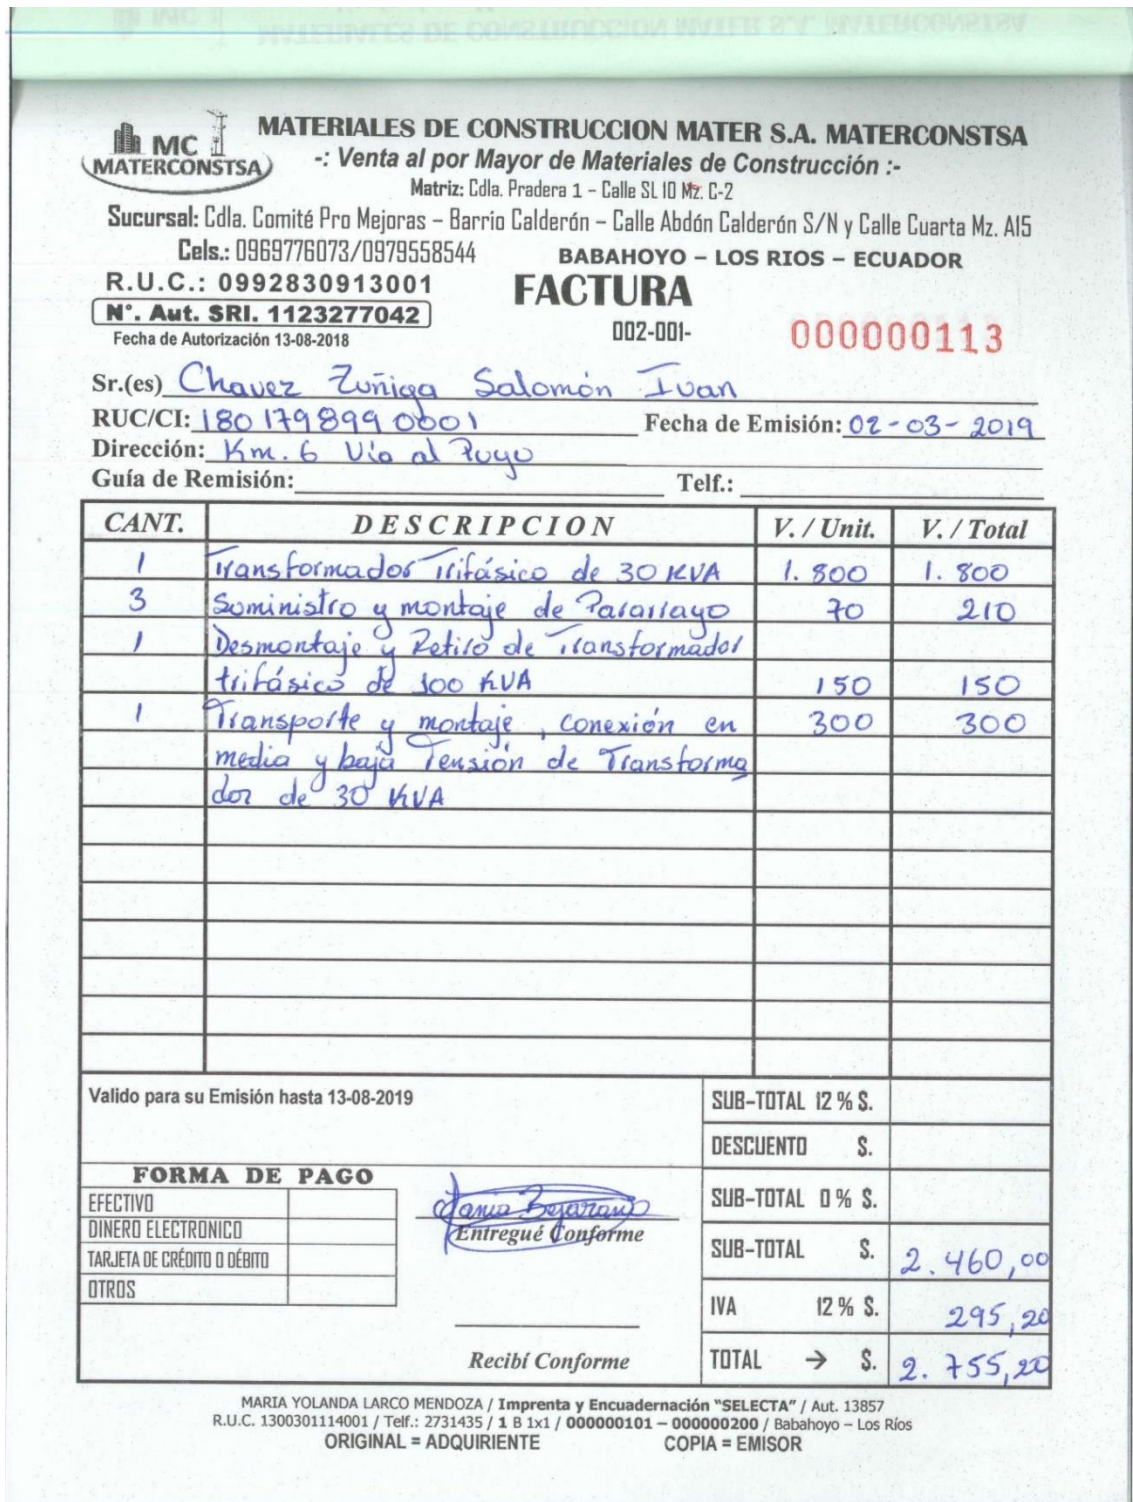 MATERIALES DE CONSTRUCCION MATER S.A. MATERCONSTSA
MC
MATERCONSTSA
-: Venta al por Mayor de Materiales de Construcción :-
Matriz: Cdla. Pradera 1 – Calle SL 10 Mz. C-2
Sucursal: Cdla. Comité Pro Mejoras – Barrio Calderón – Calle Abdón Calderón S/N y Calle Cuarta Mz. A15
Cels.: 0969776073/0979558544 BABAHOYO – LOS RIOS – ECUADOR
R.U.C.: 0992830913001 FACTURA
N°. Aut. SRI. 1123277042
Fecha de Autorización 13-08-2018 002-001- 000000113
Sr.(es) Chavez Zuñiga Salomón Ivan
RUC/CI: 1801798990001 Fecha de Emisión: 02-03-2019
Dirección: Km. 6 Vía al Puyo
Guía de Remisión: Telf.:
CANT. DESCRIPCION V. / Unit. V. / Total
1 Transformador Trifásico de 30 KVA 1.800 1.800
3 Suministro y montaje de Pararrayo 70 210
1 Desmontaje y Retiro de Transformador
trifásico de 100 KVA 150 150
1 Transporte y montaje, conexión en 300 300
media y baja Tensión de Transforma
dor de 30 KVA
Valido para su Emisión hasta 13-08-2019 SUB-TOTAL 12 % $.
DESCUENTO $.
FORMA DE PAGO
EFECTIVO SUB-TOTAL 0 % $.
Tania Bejarano
DINERO ELECTRONICO Entregué Conforme
TARJETA DE CRÉDITO O DÉBITO SUB-TOTAL $. 2.460,00
OTROS
IVA 12 % $. 295,20
Recibí Conforme TOTAL → $. 2.755,20
MARIA YOLANDA LARCO MENDOZA / Imprenta y Encuadernación "SELECTA" / Aut. 13857
R.U.C. 1300301114001 / Telf.: 2731435 / 1 B 1x1 / 000000101 – 000000200 / Babahoyo – Los Ríos
ORIGINAL = ADQUIRIENTE COPIA = EMISOR